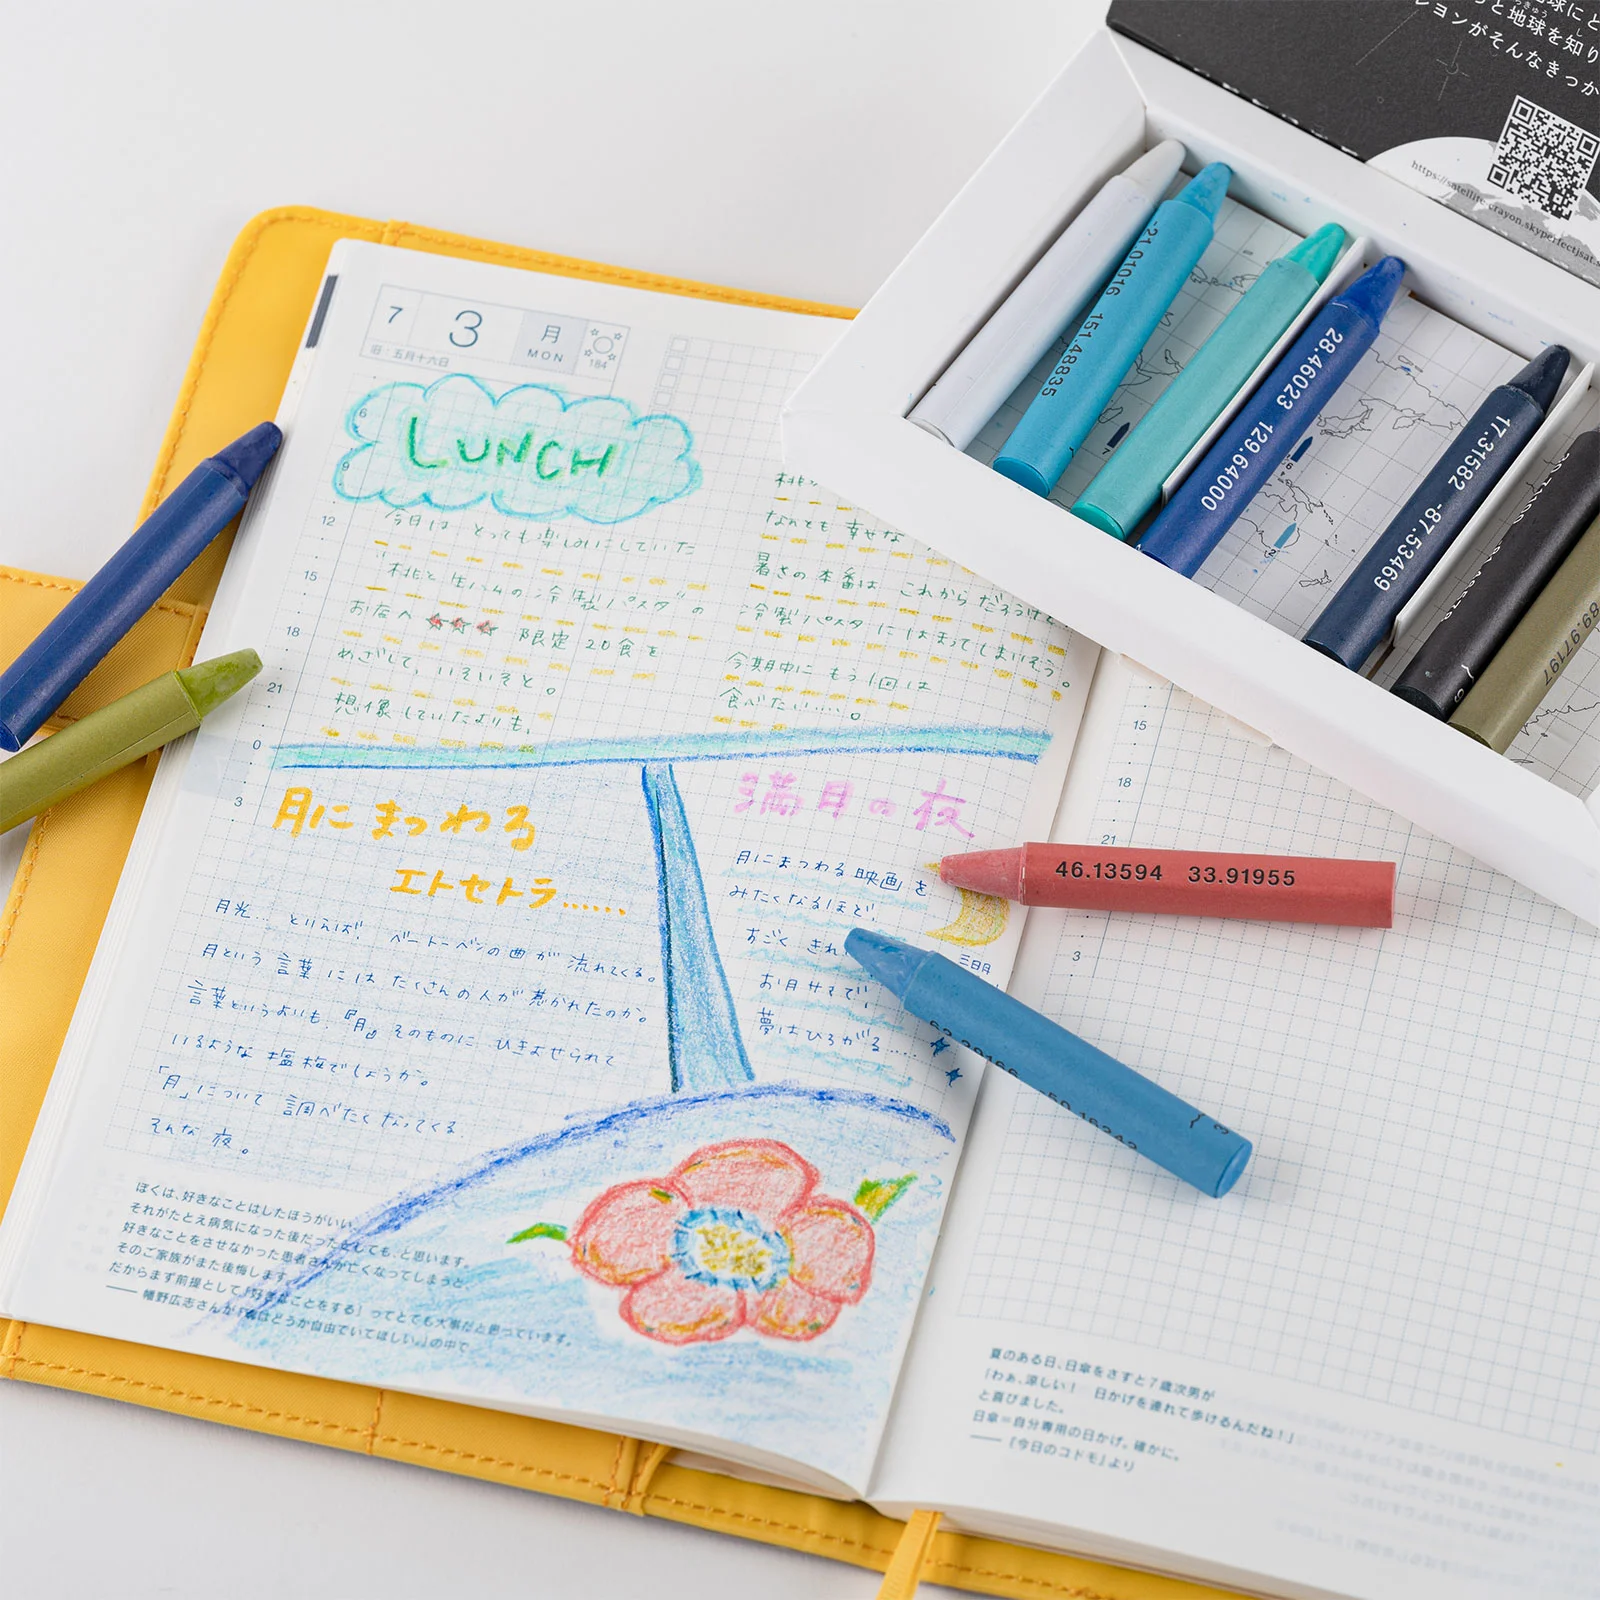 7 3 月
MON
旧:五月十六日
184
6
9
12
15
18
21
0
3
LUNCH
今日は とっても楽しみにしていた
"桃と生ハムの冷製パスタ"の
お店へ 限定 20食を
めざして、いそいそと。
想像していたよりも、
なんとも 幸せな
暑さの本番は これからだろうけど、
冷製パスタにはまってしまいそう。
今期中に もう1回は
食べたい……。
月にまつわる
エトセトラ……
月光… といえば! ベートーベンの曲が 流れてくる。
月という 言葉 には たくさんの人が 惹かれたのか。
言葉というよりも、『月』そのものに ひきよせられて
いるような 塩梅でしょうか。
「月」について 調べたくなってくる
そんな 夜。
満月の夜
月にまつわる 映画 を
みたくなるほど!
すごく きれ
お月サマで!
夢はひろがる……
三日月
ぼくは、好きなことはしたほうがいい
それがたとえ病気になった後だったとしても、と思います。
好きなことをさせなかった患者さんが亡くなってしまうと
そのご家族がまた後悔します。
だからまず前提として「好きなことをする」ってとても大事だと思っています。
—— 幡野広志さんが『僕はどうか自由でいてほしい。』の中で
15
18
21
3
夏のある日、日傘をさすと7歳次男が
「わぁ、涼しい! 日かげを連れて歩けるんだね!」
と喜びました。
日傘=自分専用の日かげ。確かに。
——『今日のコドモ』より
球にと
と地球を知り
レヨンがそんなきっか
https://satellite-crayon.skyperfectjsat.s
-21.01016 151.48835
28.46023 129.64000
17.31582 -87.53469
89.97197
46.13594 33.91955